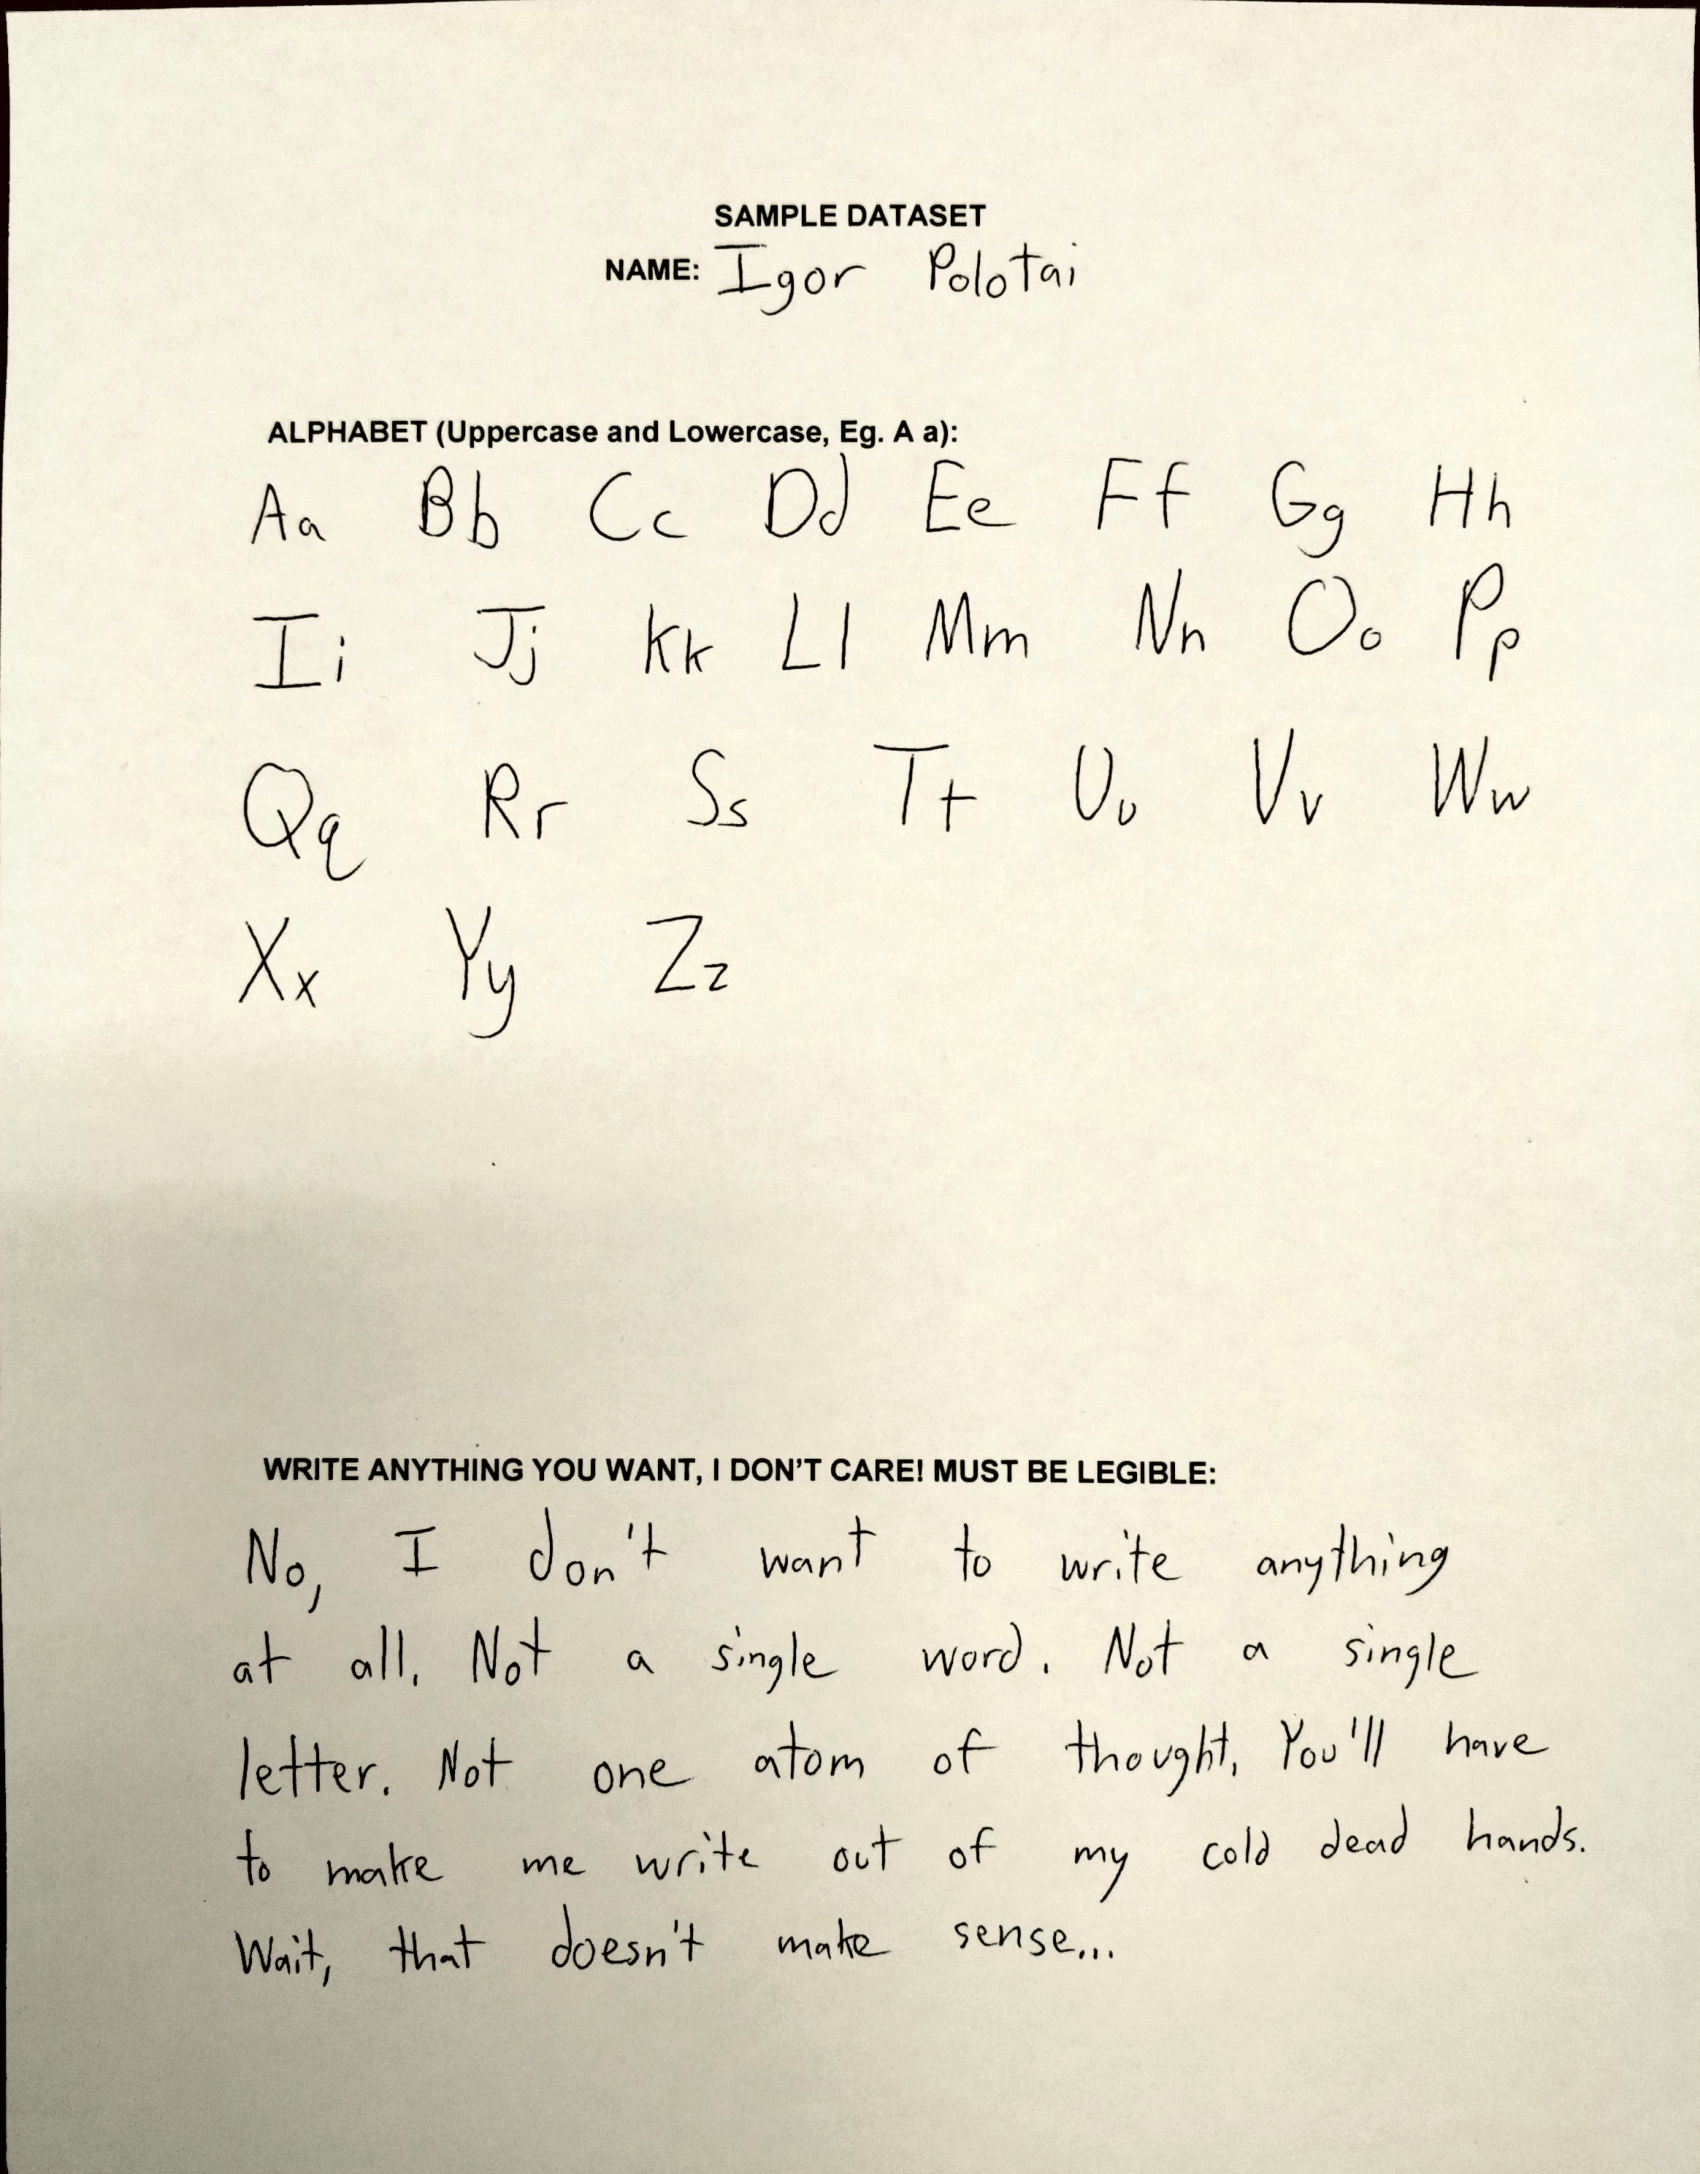 SAMPLE DATASET
NAME: Igor Polotai
ALPHABET (Uppercase and Lowercase, Eg. A a):
Aa Bb Cc Dd Ee Ff Gg Hh
Ii Jj Kk Ll Mm Nn Oo Pp
Qq Rr Ss Tt Uu Vv Ww
Xx Yy Zz
WRITE ANYTHING YOU WANT, I DON'T CARE! MUST BE LEGIBLE:
No, I don't want to write anything
at all. Not a single word. Not a single
letter. Not one atom of thought. You'll have
to make me write out of my cold dead hands.
Wait, that doesn't make sense...